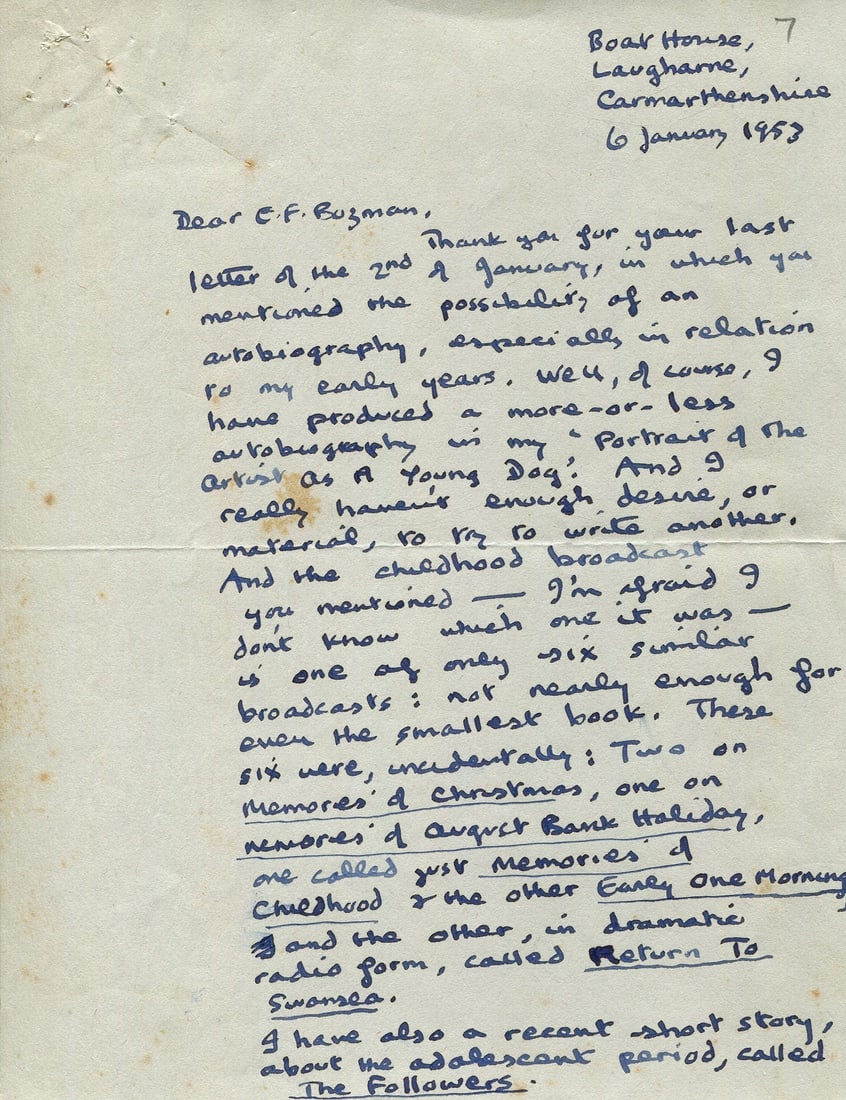 7
Boat House,
Laugharne,
Carmarthenshire
6 January 1953
Dear E.F. Bozman,
Thank you for your last
letter of the 2nd of January, in which you
mentioned the possibility of an
autobiography, especially in relation
to my early years. Well, of course, I
have produced a more-or-less
autobiography in my 'Portrait of the
Artist As A Young Dog'. And I
really haven't enough desire, or
material, to try to write another.
And the childhood broadcast
you mentioned — I'm afraid I
don't know which one it was —
is one of only six similar
broadcasts: not nearly enough for
even the smallest book. These
six were, incidentally: Two on
Memories of Christmas, one on
memories of August Bank Holiday,
one called just Memories of
Childhood & the other Early One Morning,
and the other, in dramatic
radio form, called Return To
Swansea.
I have also a recent short story,
about the adolescent period, called
The Followers.